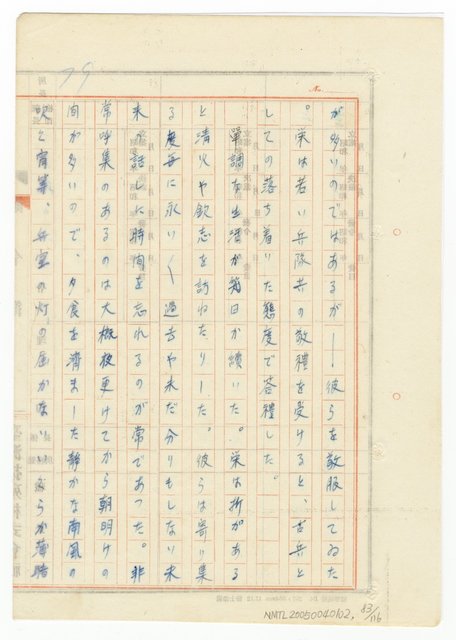 が多いのではあるが――彼らを敬服してゐた
。栄は若い兵隊共の敬禮を受けると、古兵と
しての落ち着いた態度で答禮した。
單調な生活が幾日か續いた。栄は折がある
と清火や欽志を訪ねたりした。彼らは寄り集
る度毎に永い〱過去や未だ分りもしない未
来の話しに時間を忘れるのが常であつた。非
常呼集のあるのは大概夜更けてから朝明けの
間が多いので、夕食を濟ました静かな南風の
吹く宵業、兵室の灯の届かない
NMTL20050040102, 83/116
No.